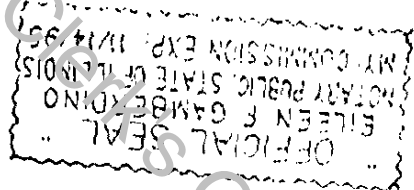 " OFFICIAL SEAL "
EILEEN F GAMBERDINO
NOTARY PUBLIC, STATE OF ILLINOIS
MY COMMISSION EXP: 11/14/95
Clerk's